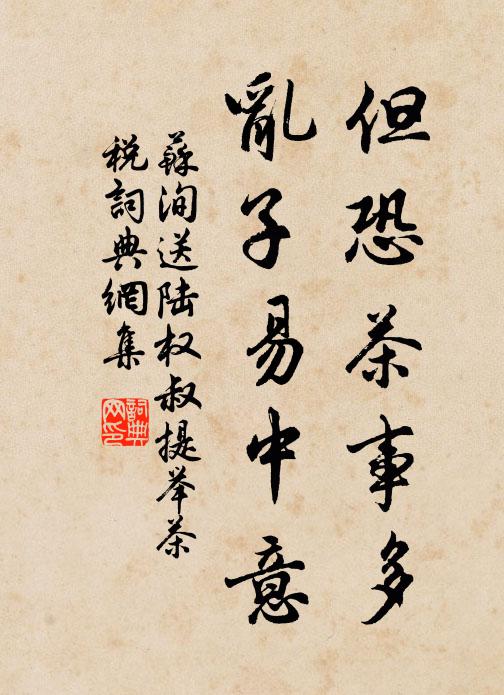 但恐茶事多
亂子易中意
蘇洵送陆权叔提举茶
税詞典網集
詞典
网印